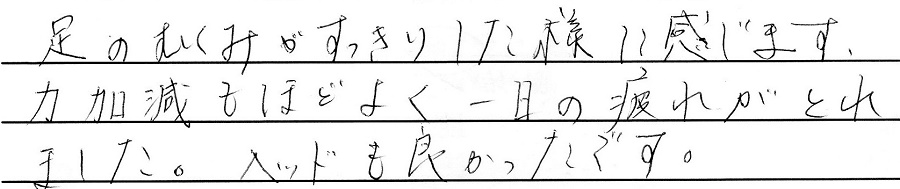 足のむくみがすっきりした様に感じます、
力加減もほどよく一日の疲れがとれ
ました。ヘッドも良かったです。